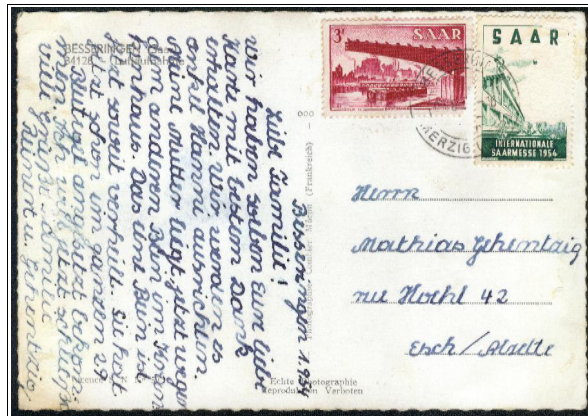 BESSERINGEN (Saar)
Luftaufnahme
3F SAAR
SAAR
INTERNATIONALE
SAARMESSE 1954
MERZIG
Besseringen 1954
Liebe Familie!
wir haben soeben Eure liebe
Karte mit bestem Dank
erhalten wir werden es
Hanni ausrichten
Meine Mutter liegt jetzt wegen
dem anderen Bein im Kran
kenhaus. Das eine Bein ist
jetzt soweit verheilt. Sie hat
jetzt schon im ganzen 29
Blutegel angesetzt bekom
men. Ich will jetzt schließen
viele Grüße Familie
Gehentaig
Herrn
Mathias Gehentaig
rue Hoehl 42
Esch/Alzette
(Frankreich)
Echte Photographie
Reproduktion Verboten